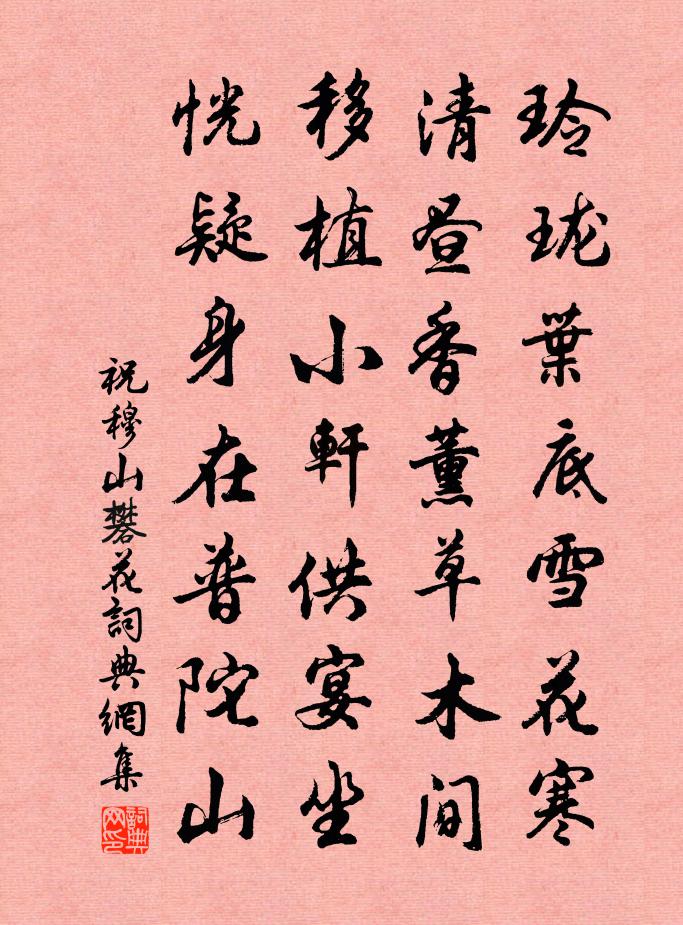 玲瓏葉底雪花寒
清晝香薰草木間
移植小軒供宴坐
恍疑身在普陀山
祝穆山礬花詞典網集
詞典网印